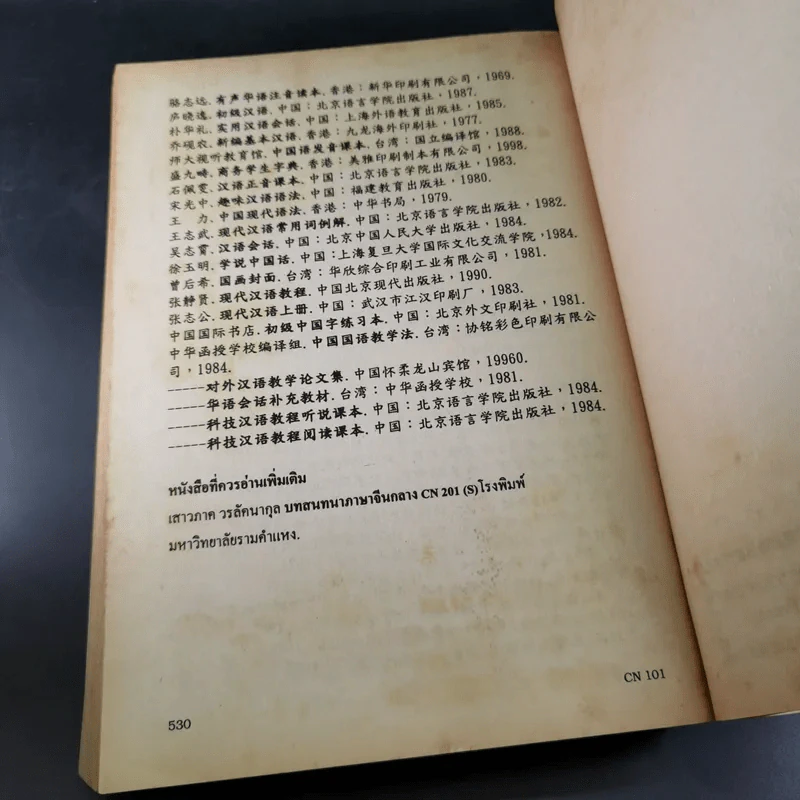 骆志远. 有声华语注音读本. 香港：新华印刷有限公司，1969.
房晓逸. 初级汉语. 中国：北京语言学院出版社，1987.
朴华礼. 实用汉语会话. 中国：上海外语教育出版社，1985.
乔砚农. 新编基本汉语. 香港：九龙海外印刷社，1977.
师大视听教育馆. 中国语发音课本. 台湾：国立编译馆，1988.
盛九畴. 商务学生字典. 香港：美雅印刷制本有限公司，1998.
石佩雯. 汉语正音课本. 中国：北京语言学院出版社，1983.
宋光中. 趣味汉语语法. 中国：福建教育出版社，1980.
王 力. 中国现代语法. 香港：中华书局，1979.
王志武. 现代汉语常用词例解. 中国：北京语言学院出版社，1982.
吴志霄. 汉语会话. 中国：北京中国人民大学出版社，1984.
徐玉明. 学说中国话. 中国：上海复旦大学国际文化交流学院，1984.
曾后希. 国画封面. 台湾：华欣综合印刷工业有限公司，1981.
张静贤. 现代汉语教程. 中国北京现代出版社，1990.
张志公. 现代汉语上册. 中国：武汉市江汉印刷厂，1983.
中国国际书店. 初级中国字练习本. 中国：北京外文印刷社，1981.
中华函授学校编译组. 中国国语教学法. 台湾：协铭彩色印刷有限公
司，1984.
-----对外汉语教学论文集. 中国怀柔龙山宾馆，19960.
-----华语会话补充教材. 台湾：中华函授学校，1981.
-----科技汉语教程听说课本. 中国：北京语言学院出版社，1984.
-----科技汉语教程阅读课本. 中国：北京语言学院出版社，1984.
หนังสือที่ควรอ่านเพิ่มเติม
เสาวภาค วรลัคนากุล บทสนทนาภาษาจีนกลาง CN 201 (S)โรงพิมพ์
มหาวิทยาลัยรามคำแหง.
530
CN 101